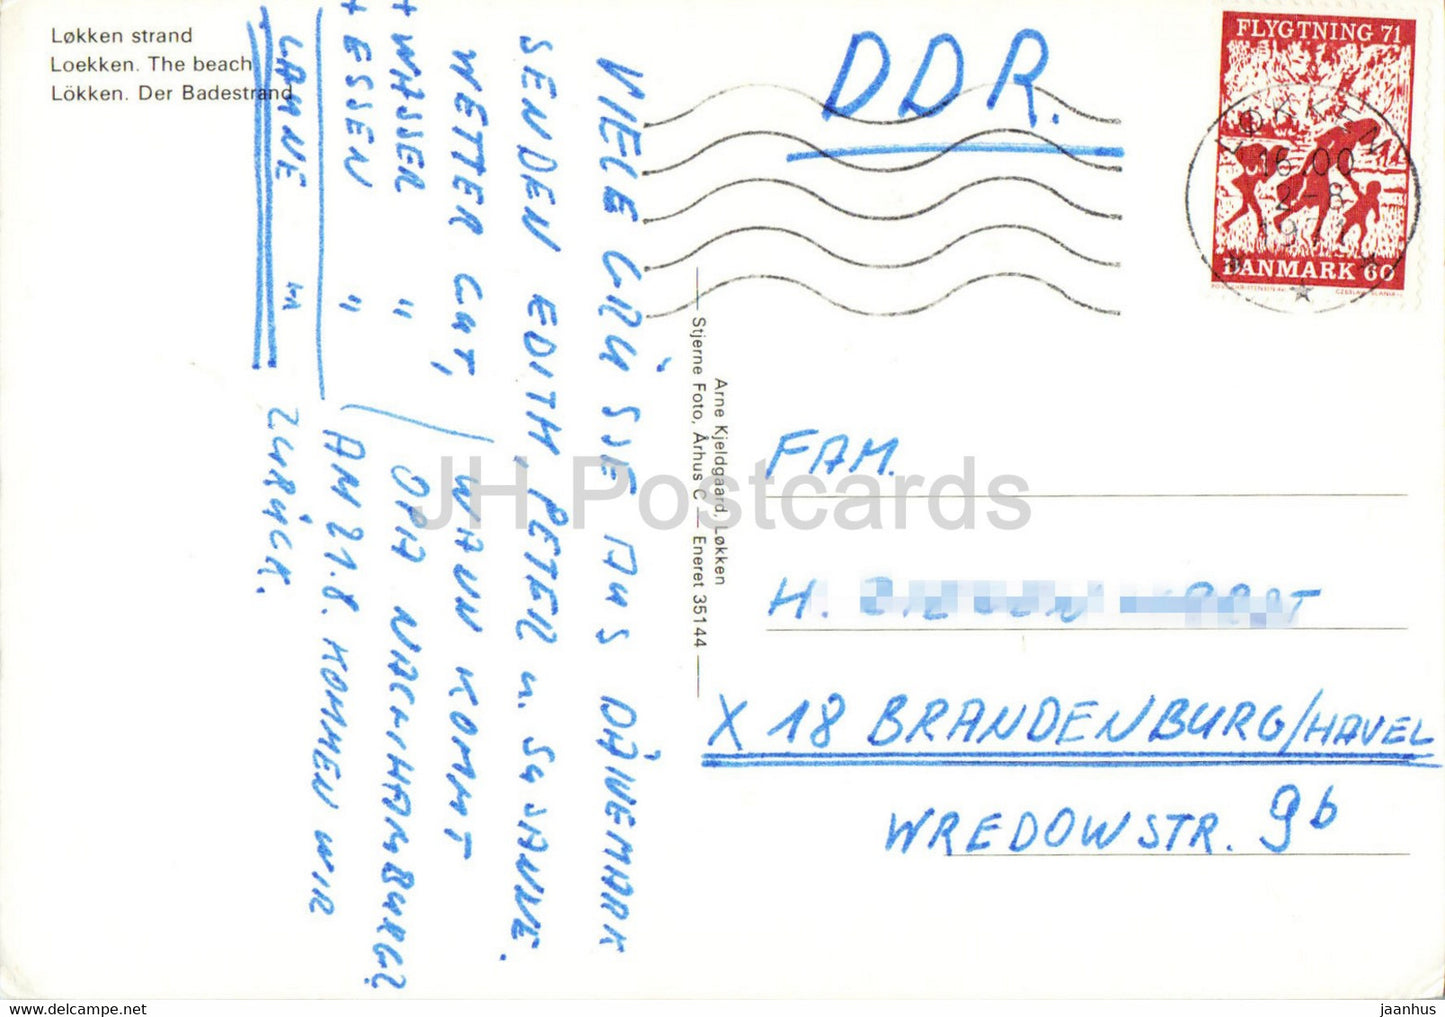 Løkken strand
Loekken. The beach
Lökken. Der Badestrand
DDR.
FLYGTNING 71
LØKKEN
16.00
2-8
1971
DANMARK 60
VIELE GRÜSSE AUS DÄNEMARK
SENDEN EDITH, PETER u. SUSANNE.
WETTER GUT,
+ WASSER "
+ ESSEN "
+ LAUNE "
WANN KOMMT
OPA NACH HAMBURG?
AM 21.8. KOMMEN WIR
ZURÜCK.
Arne Kjeldgaard, Løkken
Stjerne Foto, Århus C — Eneret 35144
FAM.
H.
X 18 BRANDENBURG/HAVEL
WREDOWSTR. 9b
JH Postcards
www.delcampe.net
jaanhus